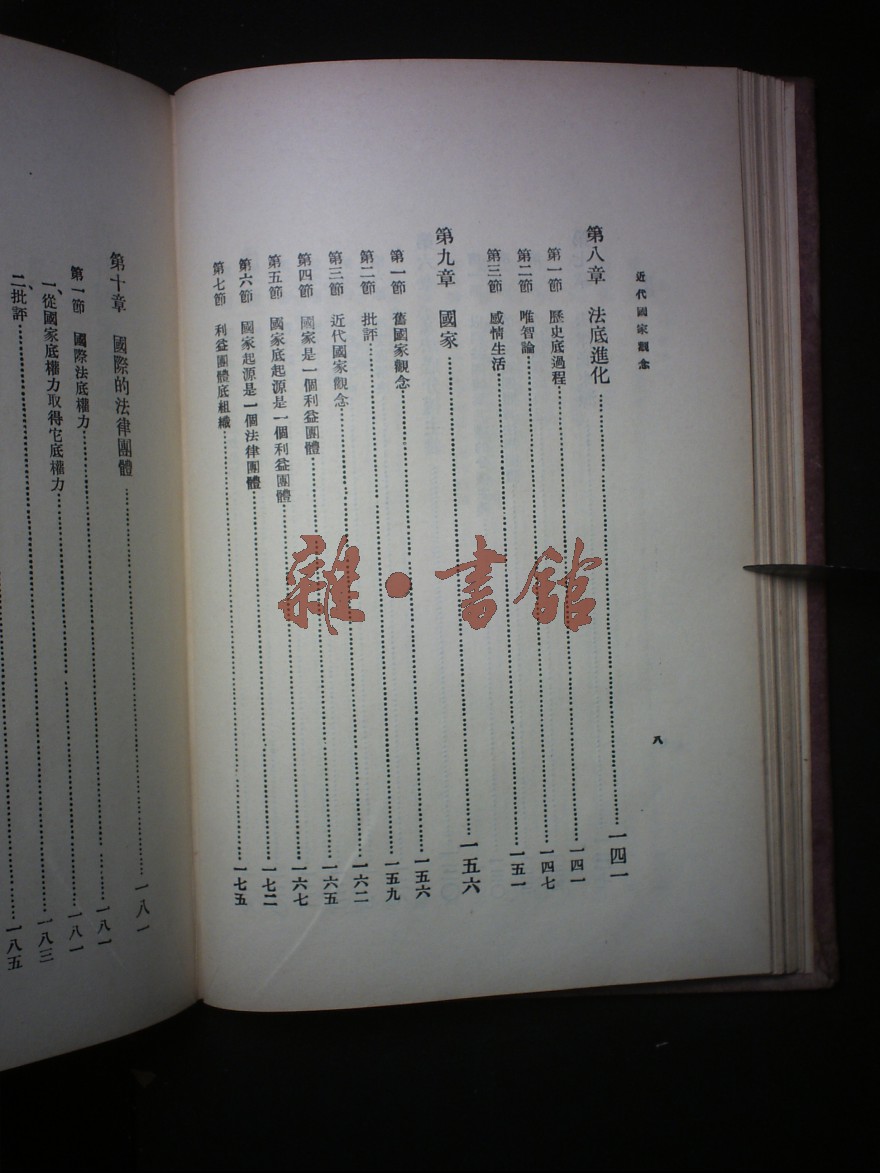 近代國家觀念
第八章　法底進化……一四一
第一節　歷史底過程……一四一
第二節　唯智論……一四七
第三節　感情生活……一五一
第九章　國家……一五六
第一節　舊國家觀念……一五六
第二節　批評……一五九
第三節　近代國家觀念……一六二
第四節　國家是一個利益團體……一六五
第五節　國家底起源是一個利益團體……一六七
第六節　國家起源是一個法律團體……一七二
第七節　利益團體底組織……一七五
八
第十章　國際的法律團體……一八一
第一節　國際法底權力……一八一
一、從國家底權力取得它底權力……一八一
二、批評……一八三
一八五
雜·書館